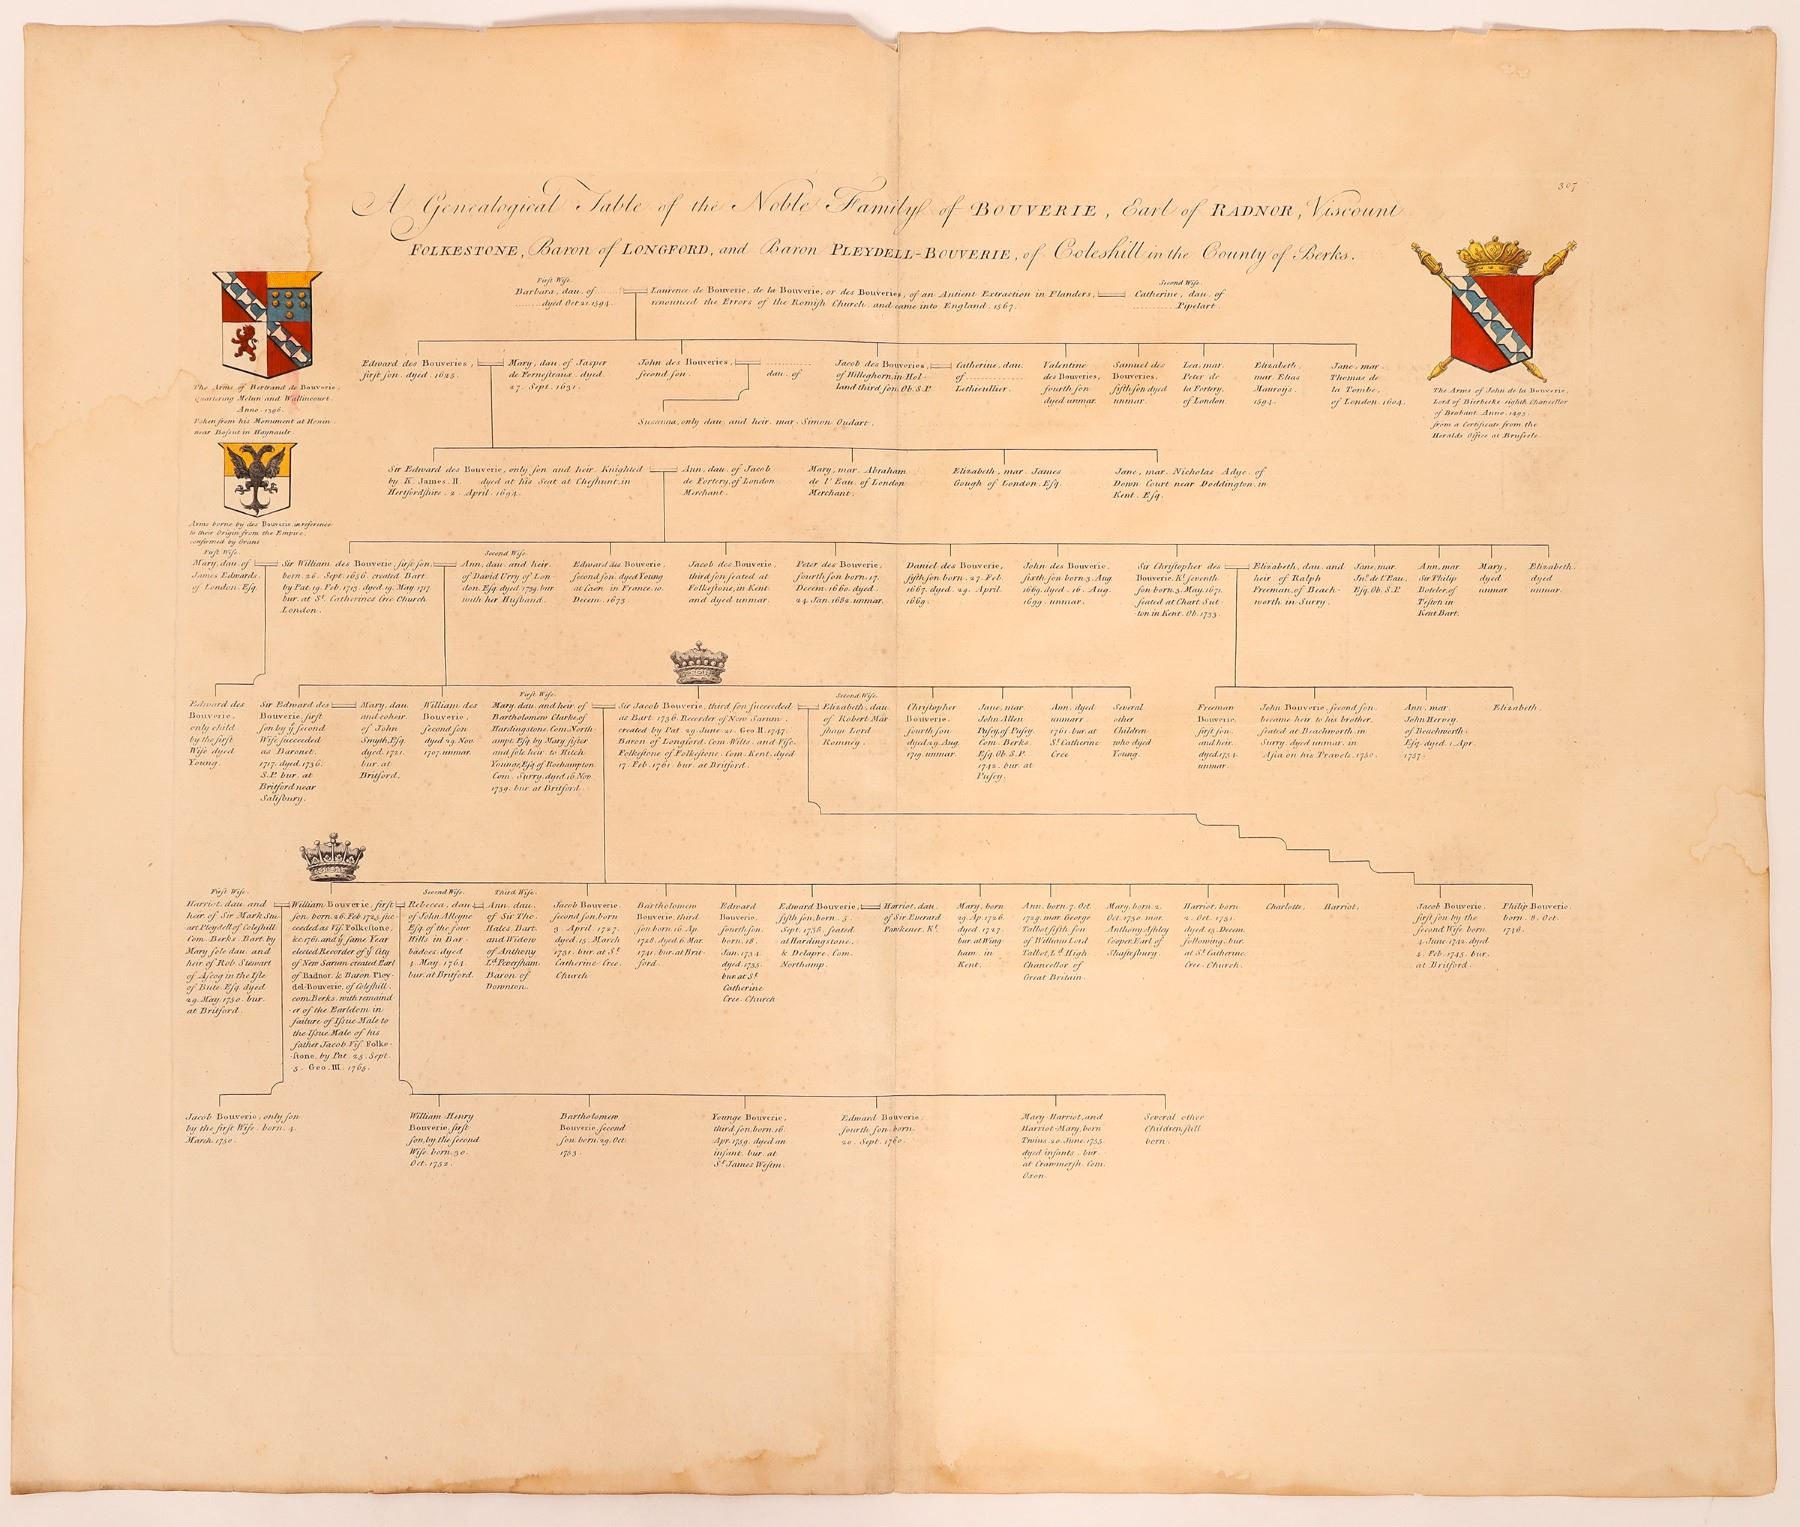 307
A Genealogical Table of the Noble Family of BOUVERIE, Earl of RADNOR, Viscount
FOLKESTONE, Baron of LONGFORD, and Baron PLEYDELL-BOUVERIE, of Coleshill in the County of Berks.
The Arms of Bertrand de Bouverie,
quartering Melun and Wallincourt.
Anno. 1396.
Taken from his Monument at Honin
near Bossut in Haynault
Arms borne by des Bouverie, in reference
to their Origin from the Empire,
confirmed by Grant
The Arms of John de la Bouverie,
Lord of Bierbeke eighth Chancellor
of Brabant. Anno. 1493.
from a Certificate from the
Heralds Office at Brussels.
First Wife.
Barbara, dau. of
dyed Oct. 21. 1594.
Laurence de Bouverie, de la Bouverie, or des Bouveries, of an Antient Extraction in Flanders,
renounced the Errors of the Romish Church, and came into England. 1567.
Second Wife.
Catherine, dau. of
Pipelart.
Edward des Bouveries,
first son. dyed. 1625.
Mary, dau. of Jasper
de Fornestraux. dyed.
27. Sept. 1631.
John des Bouveries,
second son.
dau. of
Jacob des Bouveries,
of Willeghorn, in Hol-
land third son. Ob. S.P.
Catherine, dau.
of
Lethieullier.
Valentine
des Bouveries,
fourth son
dyed unmar.
Samuel des
Bouveries,
fifth son dyed
unmar.
Lea, mar.
Peter de
la Fortery,
of London.
Elizabeth,
mar. Elias
Maurois.
1594.
Jane, mar.
Thomas de
la Tombe,
of London. 1604.
Susanna, only dau. and heir. mar. Simon Oudart.
Sir Edward des Bouverie, only son and heir. Knighted
by K. James. II. dyed at his Seat at Cheshunt, in
Hertfordshire. 2. April. 1694.
Ann, dau. of Jacob
de Fortery, of London
Merchant.
Mary, mar. Abraham
de l'Eau. of London
Merchant.
Elizabeth, mar. James
Gough of London. Esq.
Jane, mar. Nicholas Adye. of
Down Court near Doddington, in
Kent. Esq.
First Wife.
Mary, dau. of
James Edwards.
of London. Esq.
Sir William des Bouverie, first son.
born. 26. Sept. 1656. created Bart.
by Pat. 19. Feb. 1713. dyed. 19. May. 1717.
bur. at St. Catherines Cree Church.
London.
Second Wife.
Ann, dau. and heir.
of David Urry of Lon-
don. Esq. dyed. 1739. bur.
with her Husband.
Edward des Bouverie,
second son. dyed Young
at Caen in France. 10.
Decem. 1673.
Jacob des Bouverie,
third son seated at
Folkestone, in Kent.
and dyed unmar.
Peter des Bouverie,
fourth son born. 17.
Decem. 1660. dyed.
24. Jan. 1682. unmar.
Daniel des Bouverie,
fifth son. born. 27. Feb.
1667. dyed. 29. April.
1669.
John des Bouverie,
sixth son born. 3. Aug.
1669. dyed. 16. Aug.
1699. unmar.
Sir Christopher des
Bouverie. Kt. seventh
son born. 3. May. 1671.
seated at Chart Sut-
ton in Kent. Ob. 1733.
Elizabeth, dau. and
heir of Ralph
Freeman, of Beach-
worth in Surry.
Jane, mar.
Jno. de l'Eau.
Esq. Ob. S.P.
Ann, mar.
Sir Philip
Boteler, of
Teston in
Kent Bart.
Mary,
dyed
unmar.
Elizabeth.
dyed
unmar.
Edward des
Bouverie,
only child
by the first
Wife dyed
Young.
Sir Edward des
Bouverie, first
son by ye second
Wife succeeded
as Baronet.
1717. dyed. 1736.
S.P. bur. at
Britford near
Salisbury.
Mary, dau.
and coheir.
of John
Smyth, Esq.
dyed. 1721.
bur. at
Britford.
William des
Bouverie,
second son
dyed 29. Nov.
1707. unmar.
First Wife.
Mary. dau. and heir of
Bartholomew Clarke, of
Hardingstone. Com. North-
ampt. Esq. by Mary sister
and sole heir to Hitch
Younge, Esq. of Roehampton.
Com. Surry. dyed 16. Nov.
1739. bur. at Britford.
Sir Jacob Bouverie, third son succeeded
as Bart. 1736. Recorder of New Sarum.
created by Pat. 29. June. 21. Geo. II. 1747.
Baron of Longford. Com. Wilts. and Visc.
Folkestone of Folkestone. Com. Kent, dyed
17. Feb. 1761. bur. at Britford.
Second Wife.
Elizabeth, dau.
of Robert Mar
sham Lord
Romney.
Christopher
Bouverie,
fourth son
dyed 29. Aug.
1719. unmar.
Jane, mar.
John Allen
Pusey, of Pusey.
Com. Berks.
Esq. Ob. S.P.
1742. bur. at
Pusey.
Ann, dyed
unmarr.
1761. bur. at
St. Catherine
Cree
Several
other
Children
who dyed
Young.
Freeman
Bouverie,
first son.
and heir.
dyed. 1734.
unmar.
John Bouverie, second son.
became heir to his brother.
seated at Beachworth. in
Surry. dyed unmar. in
Asia on his Travels. 1750.
Ann, mar.
John Hervey.
of Beachworth.
Esq. dyed. 1. Apr.
1757.
Elizabeth.
First Wife.
Harriot, dau. and
heir. of Sir Mark Stu-
art Pleydell of Coleshill.
Com. Berks. Bart. by
Mary sole dau. and
heir of Rob. Stewart
of Ascog in the Isle
of Bute. Esq. dyed
29. May. 1750. bur.
at Britford.
William Bouverie, first
son. born. 26. Feb. 1725. suc-
ceeded as Vis. Folkestone,
&c. 1761. and ye same Year
elected Recorder of ye City
of New Sarum. created Earl
of Radnor. & Baron Pley-
del-Bouverie, of Coleshill.
com. Berks. with remaind
er of the Earldom in
failure of Issue Male to
the Issue Male of his
father Jacob. Vis. Folke-
stone, by Pat. 25. Sept.
5. Geo. III. 1765.
Second Wife.
Rebecca, dau.
of John Alleyne
Esq. of the four
Hills in Bar-
badoes. dyed
4. May. 1764.
bur. at Britford.
Third Wife.
Ann, dau.
of Sir Tho.
Hales. Bart.
and Widow
of Anthony
Ld. Feversham.
Baron of
Downton.
Jacob Bouverie.
second son. born
3. April. 1727.
dyed. 15. March
1731. bur. at St.
Catherine Cree.
Church
Bartholomew
Bouverie, third.
son born. 16. Ap.
1728. dyed. 6. Mar.
1741. bur. at Brit-
ford.
Edward
Bouverie,
fourth son.
born. 18.
Jan. 1734.
dyed. 1735.
bur. at St.
Catherine
Cree. Church
Edward Bouverie,
fifth son, born. 5.
Sept. 1738. seated
at Hardingstone,
& Delapre. Com.
Northamp.
Harriot, dau.
of Sir Everard
Fawkener. Kt.
Mary, born
29. Ap. 1726.
dyed. 1727.
bur. at Wing-
ham. in
Kent.
Ann. born. 7. Oct.
1729. mar. George
Talbot, fifth son
of William Lord
Talbot, Ld. High
Chancellor of
Great Britain.
Mary, born. 2.
Oct. 1730. mar.
Anthony Ashley
Cooper, Earl of
Shaftesbury.
Harriot, born.
2. Oct. 1731.
dyed. 15. Decem.
following. bur.
at St. Catherine
Cree. Church.
Charlotte.
Harriot.
Jacob Bouverie,
first son by the
second Wife born.
4. June. 1742. dyed
4. Feb. 1745. bur.
at Britford.
Philip Bouverie.
born. 8. Oct.
1746.
Jacob Bouverie, only son
by the first Wife. born. 4.
March. 1750.
William Henry
Bouverie, first
son, by the second
Wife. born. 30.
Oct. 1752.
Bartholomew
Bouverie, second
son. born. 29. Oct.
1753.
Younge Bouverie,
third son. born. 16.
Apr. 1759. dyed an
infant. bur. at
St. James Westm.
Edward Bouverie,
fourth son. born
20. Sept. 1760.
Mary-Harriot, and
Harriot-Mary, born
Twins. 20. June. 1755.
dyed infants. bur.
at Crawmersh. Com.
Oxon.
Several other
Children, still
born.